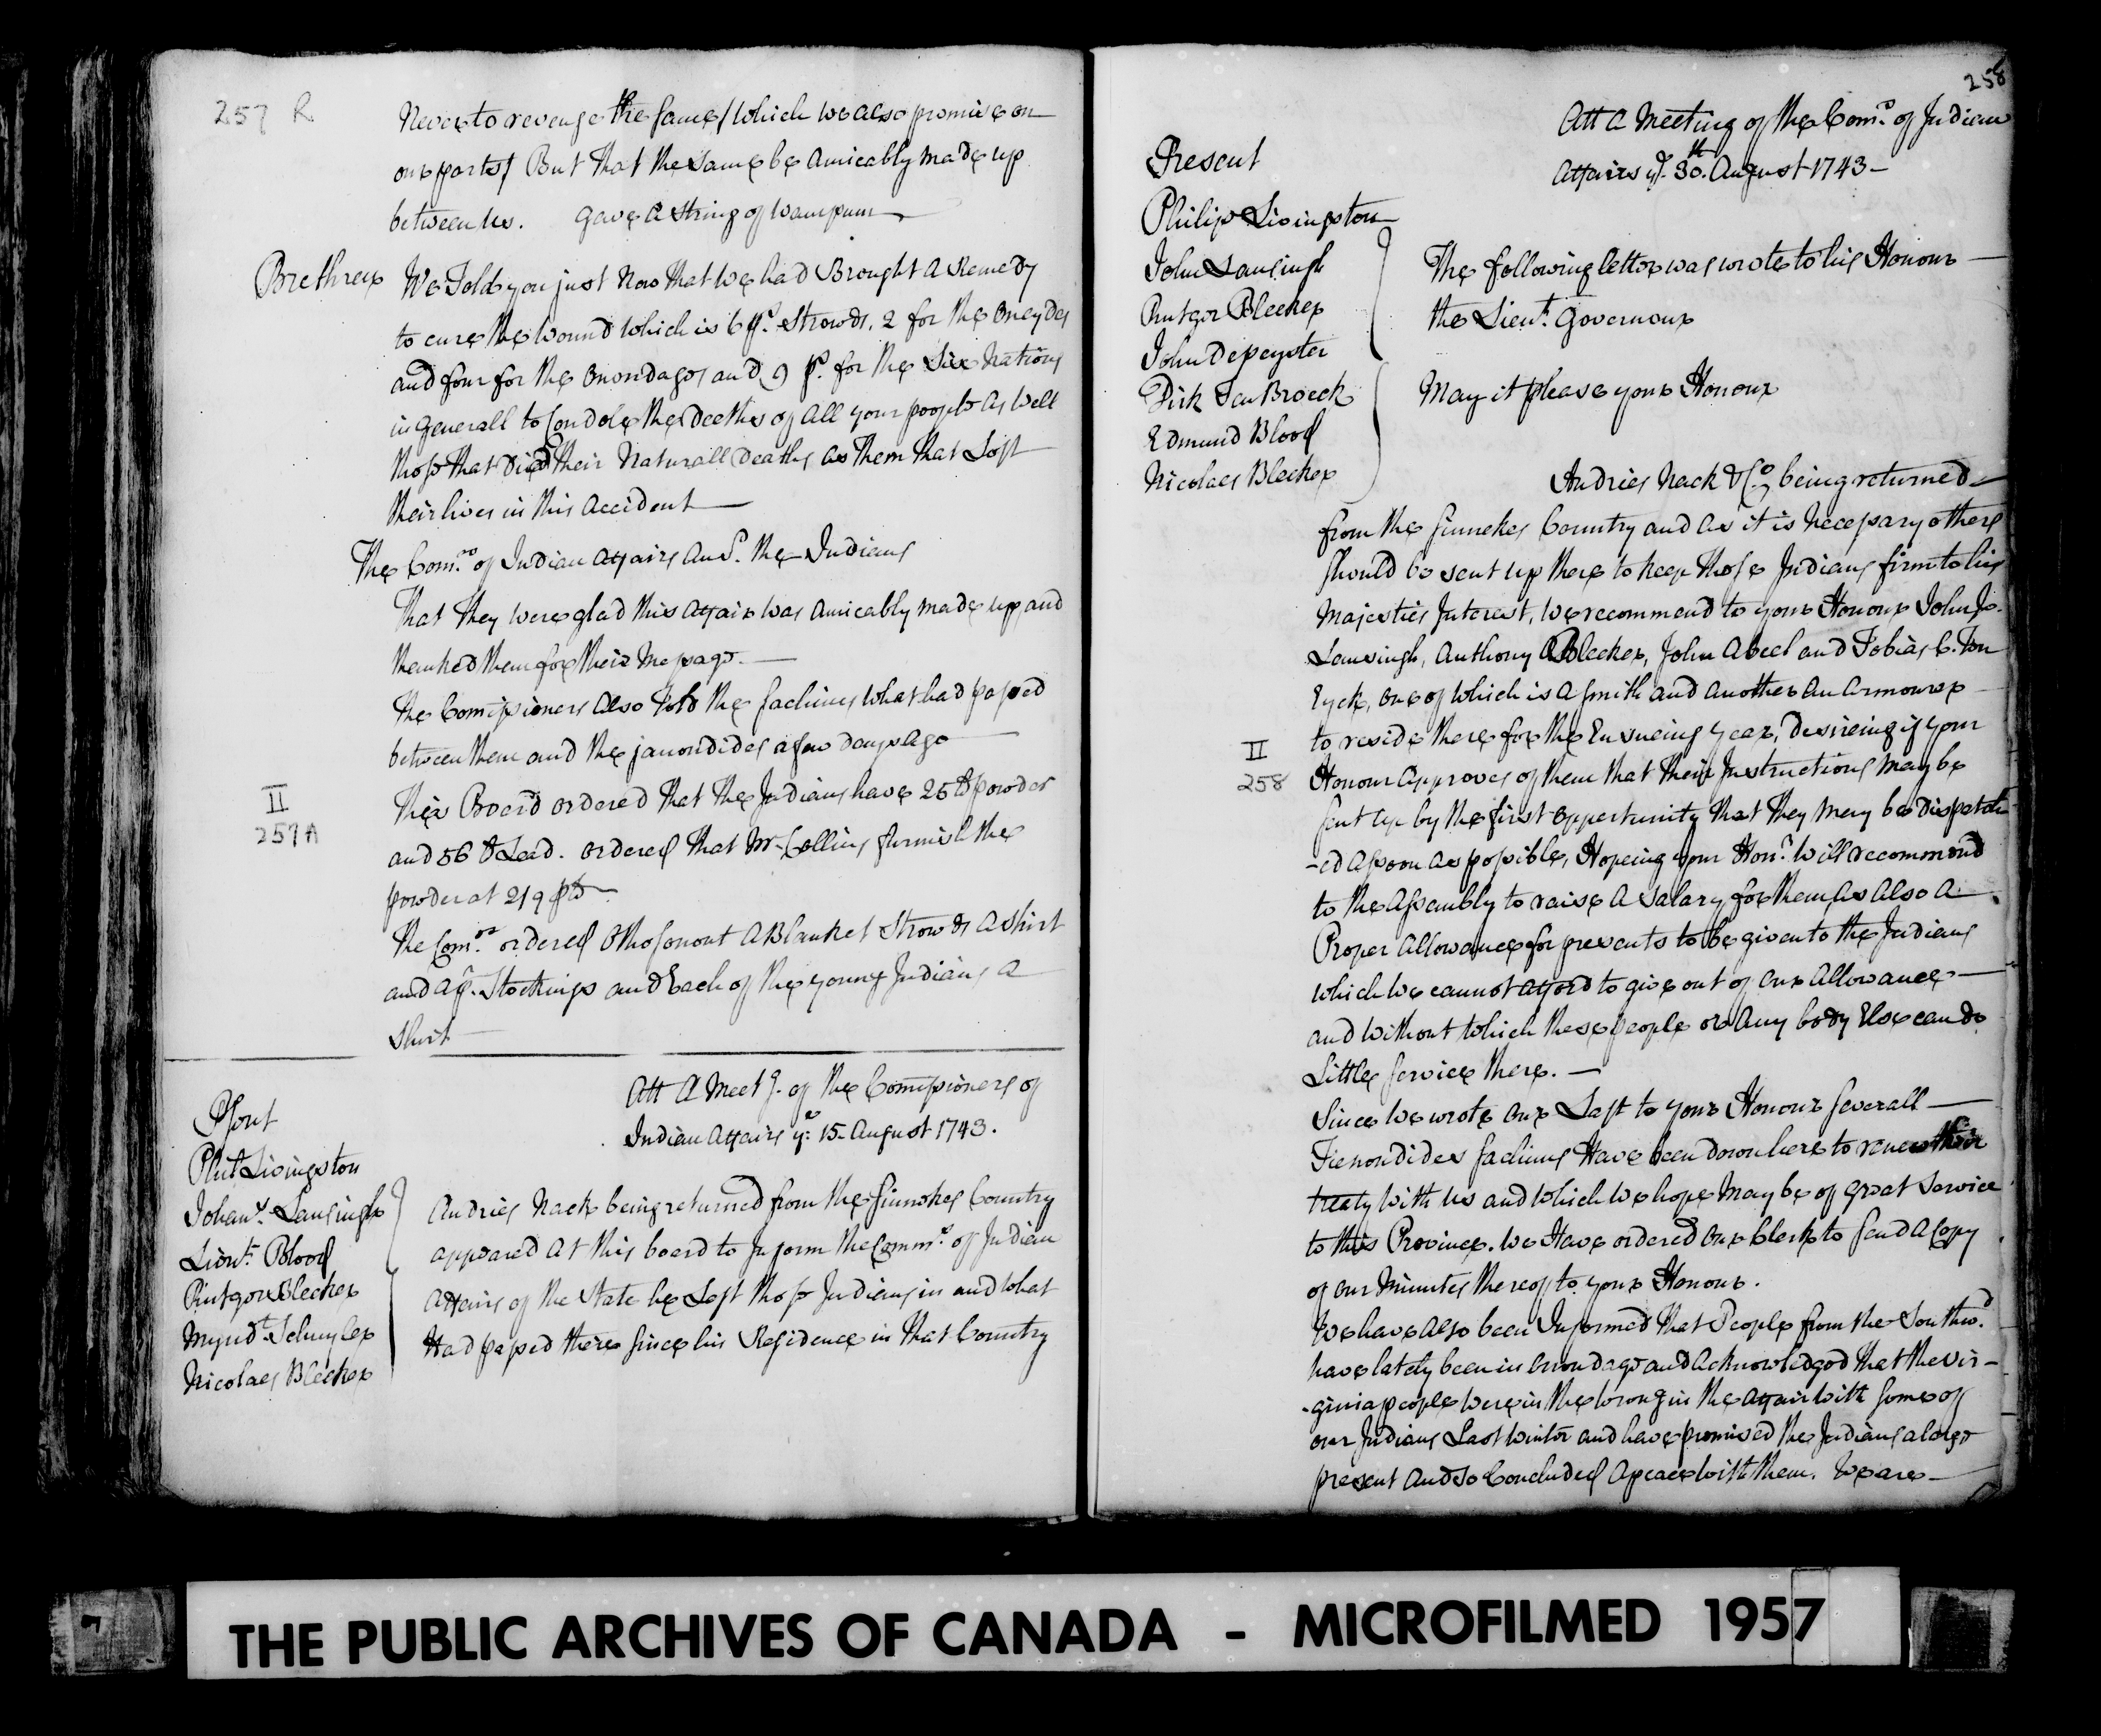 257 R
Never to revenge the same / which we also promise on
our parts / But that the same be amicably made up
between us. Gave a string of wampum
Brethren We Told you just Now that we had Brought a Remedy
to cure the Wound which is 6 ps. Strowds, 2 for the Oneydes
and four for the Onondages and 9 ps. for the Six Nations
in Generall to Condole the Deeths of all your people as well
those that Died their Naturall Deaths as Them that Lost
their lives in this accident
The Comrs. of Indian affairs Ansd. the Indians
That They were glad this affair was amicably made up and
thanked them for their Message.
the Comissioners also told the sachims what had passed
between them and the janondides a few days ago
II
257A
This Board ordered That the Indians have 25 lb powder
and 56 lb Lead. Ordered that Mr. Collins furnish the
powder at 2/9 p lb
The Comrs. ordered a Blanket Strowds a Shirt
and a pr. Stockings and Each of the young Indians a
Shirt
Att A Meetg. of the Comissioners of
Indian Affairs ye. 15 August 1743.
Psent
Phil Livingston
Johans. Lansingh
Lieut. Blood
Rutger Bleeker
Myndt. Schuyler
Nicolaes Bleeker
Andries Nack being returned from the sinnekes Country
appeared at this board to Inform the Comms. of Indian
Affairs of the State he Left those Indians in and what
Had passed there since his Residence in that Country
258
Att a Meeting of the Coms. of Indian
Affairs ye. 30th. August 1743 -
Present
Philip Livingston
John Lansingh
Rutger Bleeker
John Depeyster
Dirk Ten Broeck
Edmund Blood
Nicolaes Bleeker
The following letter was wrote to his Honour
the Lieut. Governour
May it please your Honour
Andries Nack & Co. being returned
from the sinnekes Country and as it is necessary others
should be sent up there to keep those Indians firm to his
Majesties Interest, we recommend to your Honour John Js.
Lansingh, Anthony Bleeker, John Abeel and Tobias C. Ten
Eyck, one of which is a smith and another an armourer
to reside there for the Ensueing year, desireing if your
II
258
Honour approves of them that their Instructions may be
sent up by the first Oppertunity that They may be dispatch
-ed assoon as possible, Hopeing your Honr. will recommend
to the Assembly to raise a salary for them as also a
Proper allowance for presents to be given to the Indians
which we cannot afford to give out of our allowance
and without which these people or any body Else can do
Little service there. -
Since we wrote our Last to your Honour severall
Tienondides sachims Have been down here to renew their
treaty with us and which we hope may be of great service
to this Province. we Have ordered our Clerk to send a Copy
of our Minutes thereof to your Honour.
We have also been Informed that People from the Southwd.
have lately been in Onondago and acknowledged that the Vir-
-ginia people were in the wrong in the affair with some of
our Indians Last winter and have promised the Indians a large
present and so Concluded a peace with them. we are
THE PUBLIC ARCHIVES OF CANADA - MICROFILMED 1957